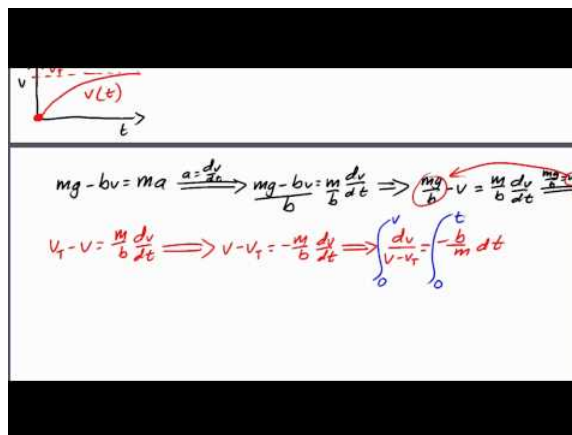 v
v(t)
t
mg - bv = ma \xRightarrow{a = \frac{dv}{dt}} \frac{mg - bv}{b} = \frac{m}{b} \frac{dv}{dt} ⇒ \frac{mg}{b} - v = \frac{m}{b} \frac{dv}{dt}
v_T - v = \frac{m}{b} \frac{dv}{dt} ⟹ v - v_T = -\frac{m}{b} \frac{dv}{dt} ⟹ \int_0^v \frac{dv}{v - v_T} = \int_0^t -\frac{b}{m} dt